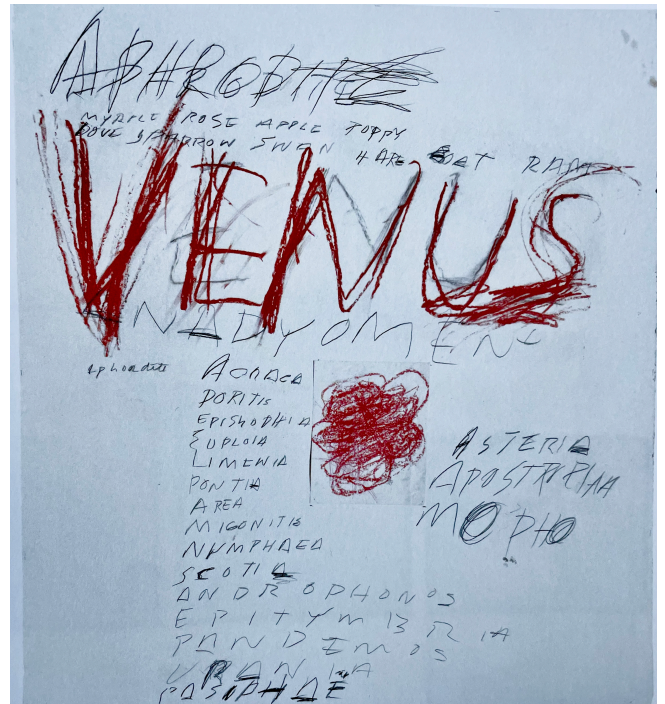 APHRODITE
MYRTLE ROSE APPLE POPPY
DOVE SPARROW SWAN HARE GOAT RAM
VENUS
ANADYOMENE
Aphrodite
ACRAEA
DORITIS
EPISTROPHIA
EUPLOIA
LIMENIA
PONTIA
AREA
MIGONITIS
NYMPHAEA
SCOTIA
ANDROPHONOS
EPITYMBRIA
PANDEMOS
URANIA
PASIPHAE
ASTERIA
APOSTROPHIA
MORPHO